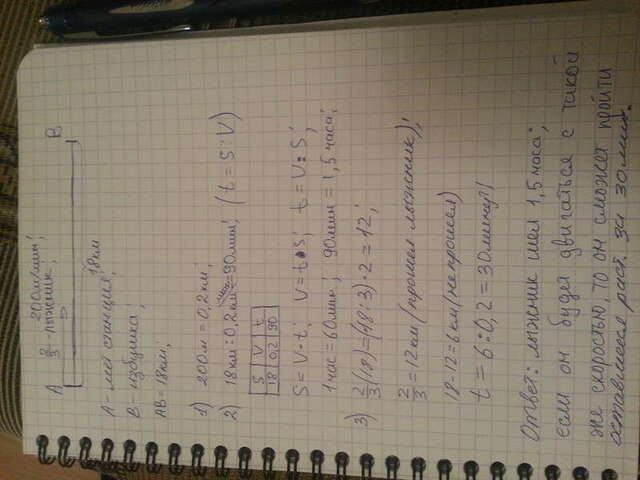 200м/мин;
A 2/3 - лыжник; B
18км
A - лыж станция;
B - избушка;
AB = 18км;
1) 200м = 0,2 км;
2) 18км : 0,2 км/мин = 90мин; (t = S : V)
S V t
18 0,2 90
S = V · t; V = t · S; t = V : S;
1 час = 60мин; 90мин = 1,5 часа;
3) 2/3 (18) = (18 : 3) · 2 = 12;
2/3 = 12 км (прошел лыжник);
18 - 12 = 6 км (не прошел)
t = 6 : 0,2 = 30 минут;
Ответ: лыжник шел 1,5 часа;
если он будет двигаться с такой
же скоростью, то он сможет пройти
оставшееся раст. за 30 мин.